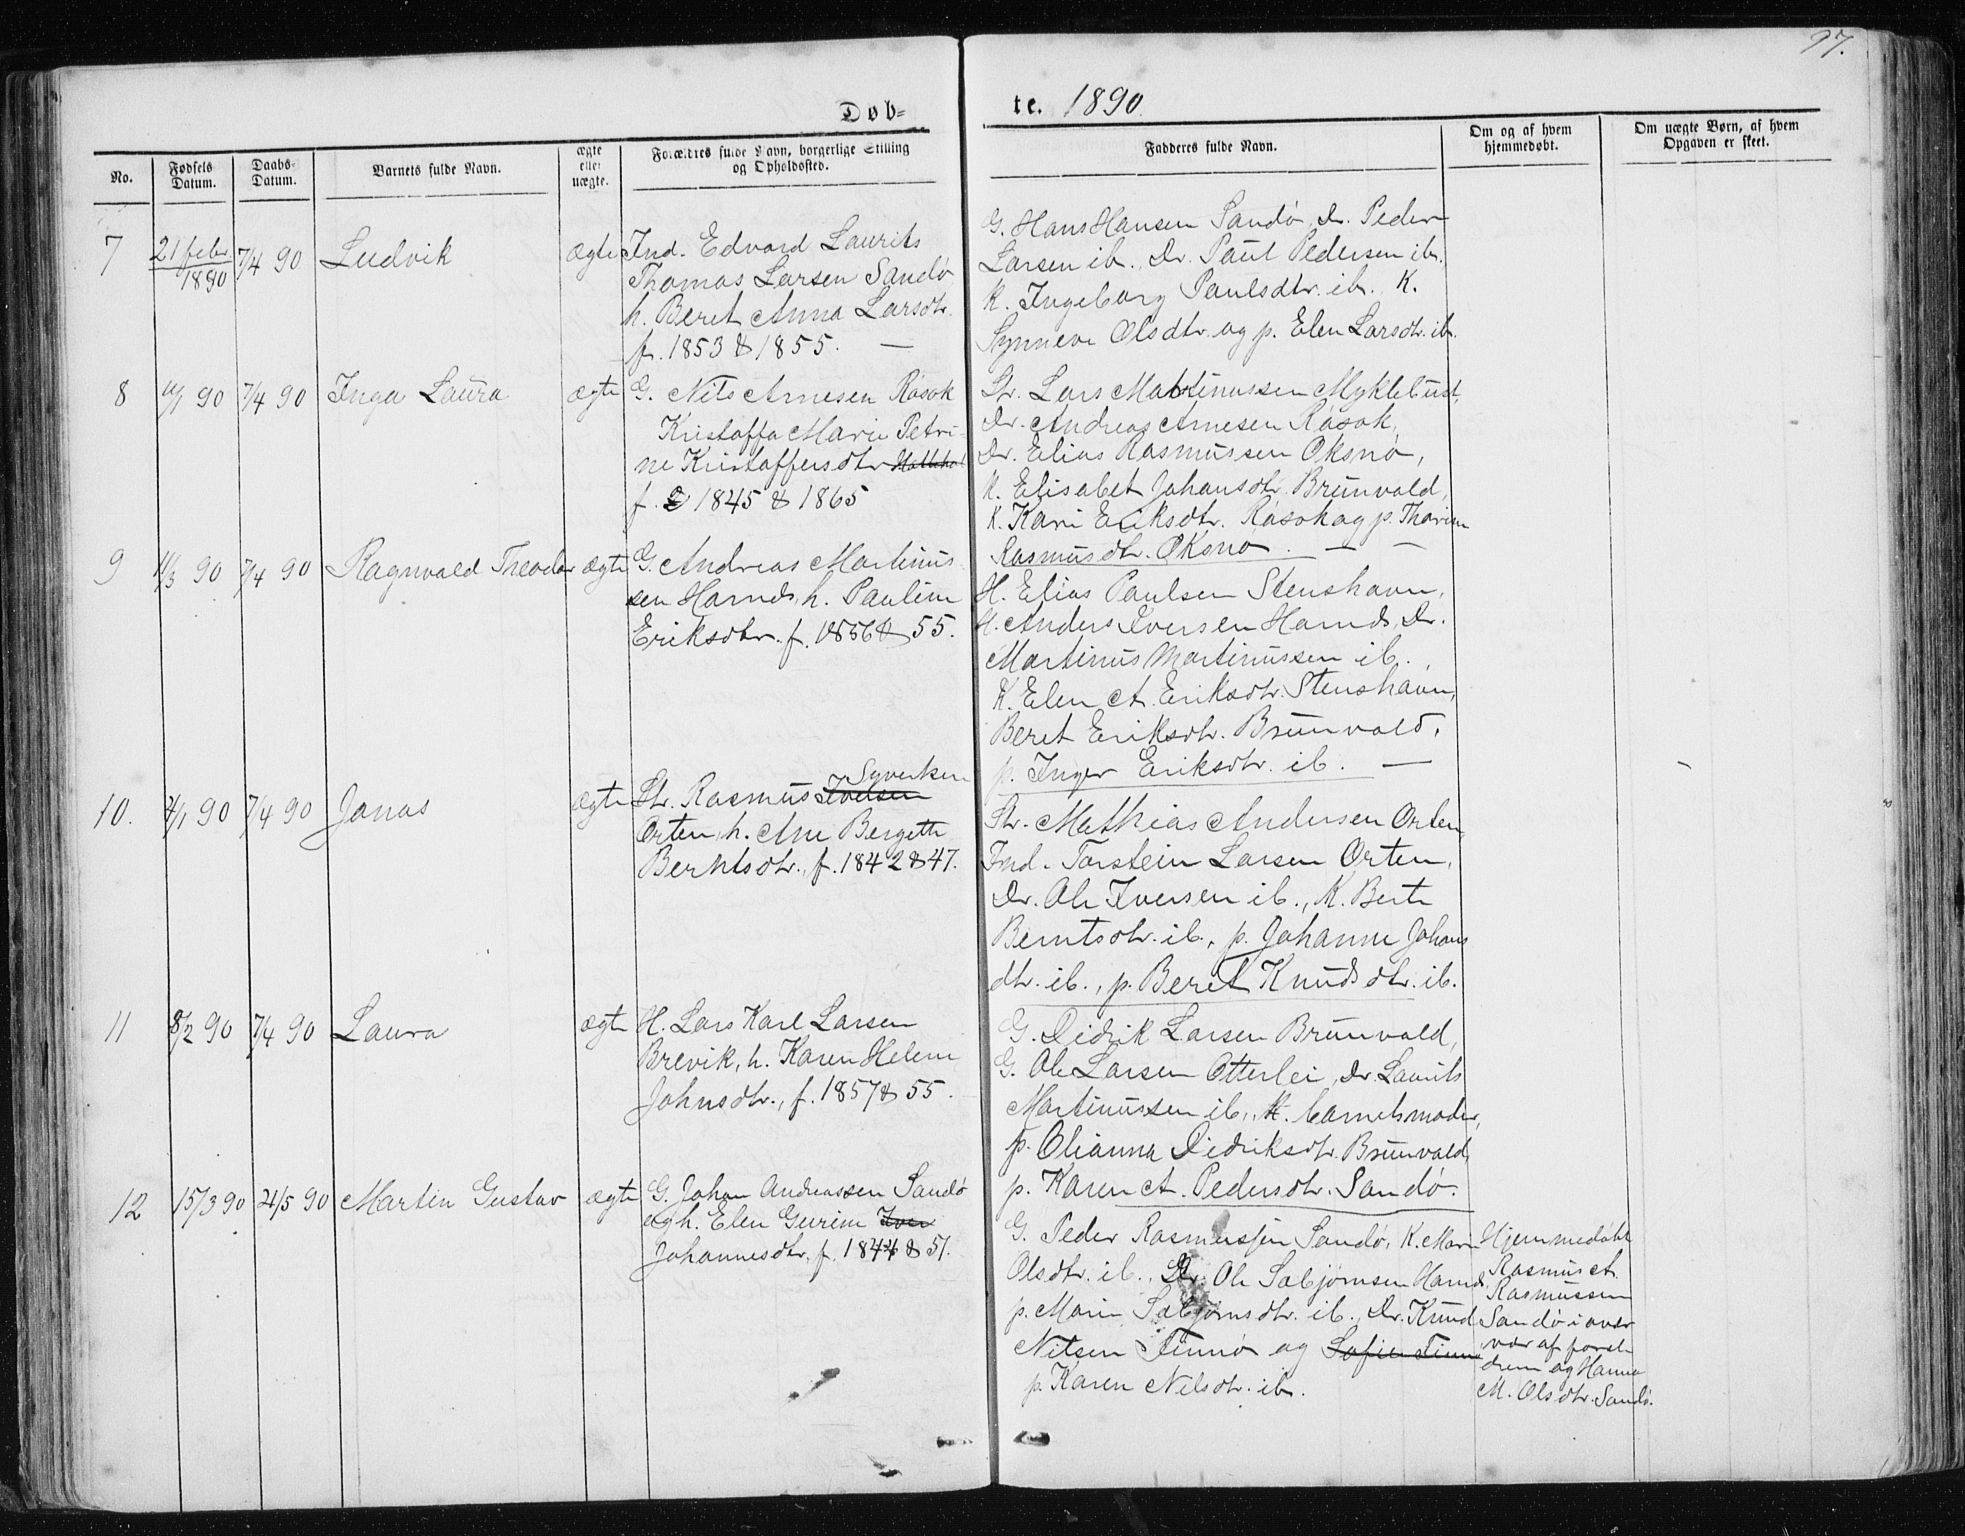 97.
Døb=
te. 1890.
No.
Fødsels
Datum.
Daabs=
Datum.
Barnets fulde Navn.
ægte
eller
uægte.
Forældres fulde Navn, borgerlige Stilling
og Opholdssted.
Fadderes fulde Navn.
Om og af hvem
hjemmedøbt.
Om uægte Børn, af hvem
Opgaven er skeet.
7
21 febr
1890
7/4 90
Ludvik
ægte
Ind. Edvard Laurits
Thomas Larsen Sandø
h. Beret Anna Larsdtr.
f. 1853 & 1855. —
G. Hans Hansen Sandø, Dr. Peder
Larsen ib., Dr. Paul Pedersen ib.
K. Ingeborg Paulsdtr. ib. K.
Synneve Olsdtr. og p. Elen Larsdtr. ib.
8
90
7/4 90
Inga Laura
ægte
G. Nils Arnesen Råsok
Kristoffa Marie Petri-
ne Kristoffersdtr
f. 1845 & 1865
Str. Lars Martinussen Myklebust,
Dr. Andreas Arnesen Råsok,
Dr. Elias Rasmussen Oksnø,
K. Elisabet Johansdtr. Brunvold,
K. Kari Eriksdtr. Råsok og p. Thorine
Rasmusdtr. Oksnø. — —
9
11/3 90
7/4 90
Ragnvald Theodor
ægte
G. Andreas Martinus
sen Harnds, h. Pauline
Eriksdtr. f. 1856 & 55.
H. Elias Paulsen Stenshavn,
H. Anders Iversen Harnds, Dr.
Martinus Martinussen ib.,
K. Elen A. Eriksdtr. Stenshavn,
Beret Eriksdtr. Brunvold,
p. Inger Eriksdtr. ib. —
10.
4/1 90
7/4 90
Jonas
ægte
Syvertsen
Str. Rasmus Iversen
Orten, h. Ane Bergette
Berntsdtr., f. 1842 & 47.
Str. Mathias Andersen Orten,
Ind. Torstein Larsen Orten,
Dr. Ole Iversen ib., K. Berte
Berntsdtr. ib., p. Johanne Johans
dtr. ib., p. Beret Knudsdtr. ib.
11
8/2 90
7/4 90
Laura
ægte
H. Lars Karl Larsen
Brevik, h. Karen Helene
Johnsdtr., f. 1857 & 55.
G. Didrik Larsen Brunvold,
G. Ole Larsen Otterlei, Dr. Laurits
Martinussen ib., K. barnets moder,
p. Olianna Didriksdtr. Brunvold,
p. Karen A. Pedersdtr. Sandø.
12
15/3 90
24/5 90
Martin Gustav
ægte
G. Johan Andreassen Sandø
og h. Elen Gurine Iver
Johannesdtr, f. 1844 & 51.
G. Peder Rasmussen Sandø, K. Marie
Olsdtr. ib., Dr. Ole Sæbjørnsen Harnds,
p. Marie Sæbjørnsdtr. ib., Dr. Knud
Nilsen Finnø og Sofie Finnø
p. Karen Nilsdtr. ib.
Hjemmedøbt
Rasmus A.
Rasmussen
Sandø i over
vær af forel-
drene og Hanna
M. Olsdtr. Sandø.